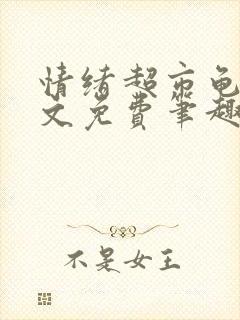 情绪超市龟
文免费笔趣
不是女王